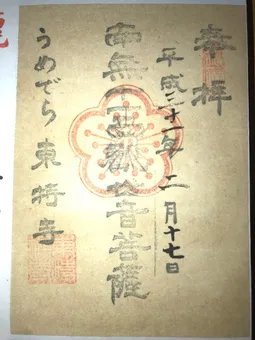 奉拝
平成三十一年二月十七日
南無十一面観世音菩薩
うめでら 東持寺